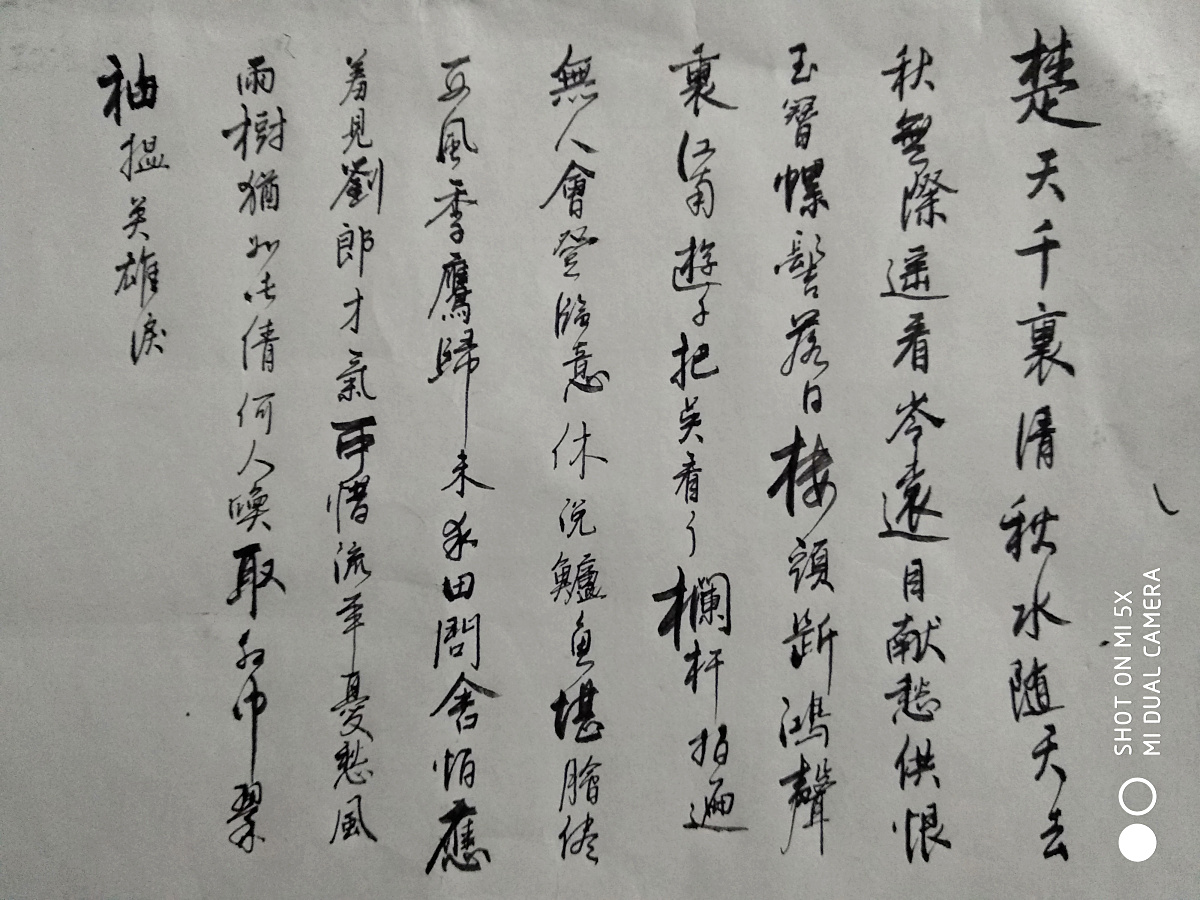 楚天千裏清秋水随天去
秋無際遥看岑遠目献愁供恨
玉簪螺髻落日楼頭斷鴻聲
裏江南遊子把吴看了欄杆拍遍
無人會登臨意休说鱸魚堪膾侭
西風季鷹歸未求田問舍怕應
羞見劉郎才氣可惜流年憂愁風
雨樹猶如此倩何人唤取紅巾翠
袖揾英雄淚
SHOT ON MI 5X
MI DUAL CAMERA